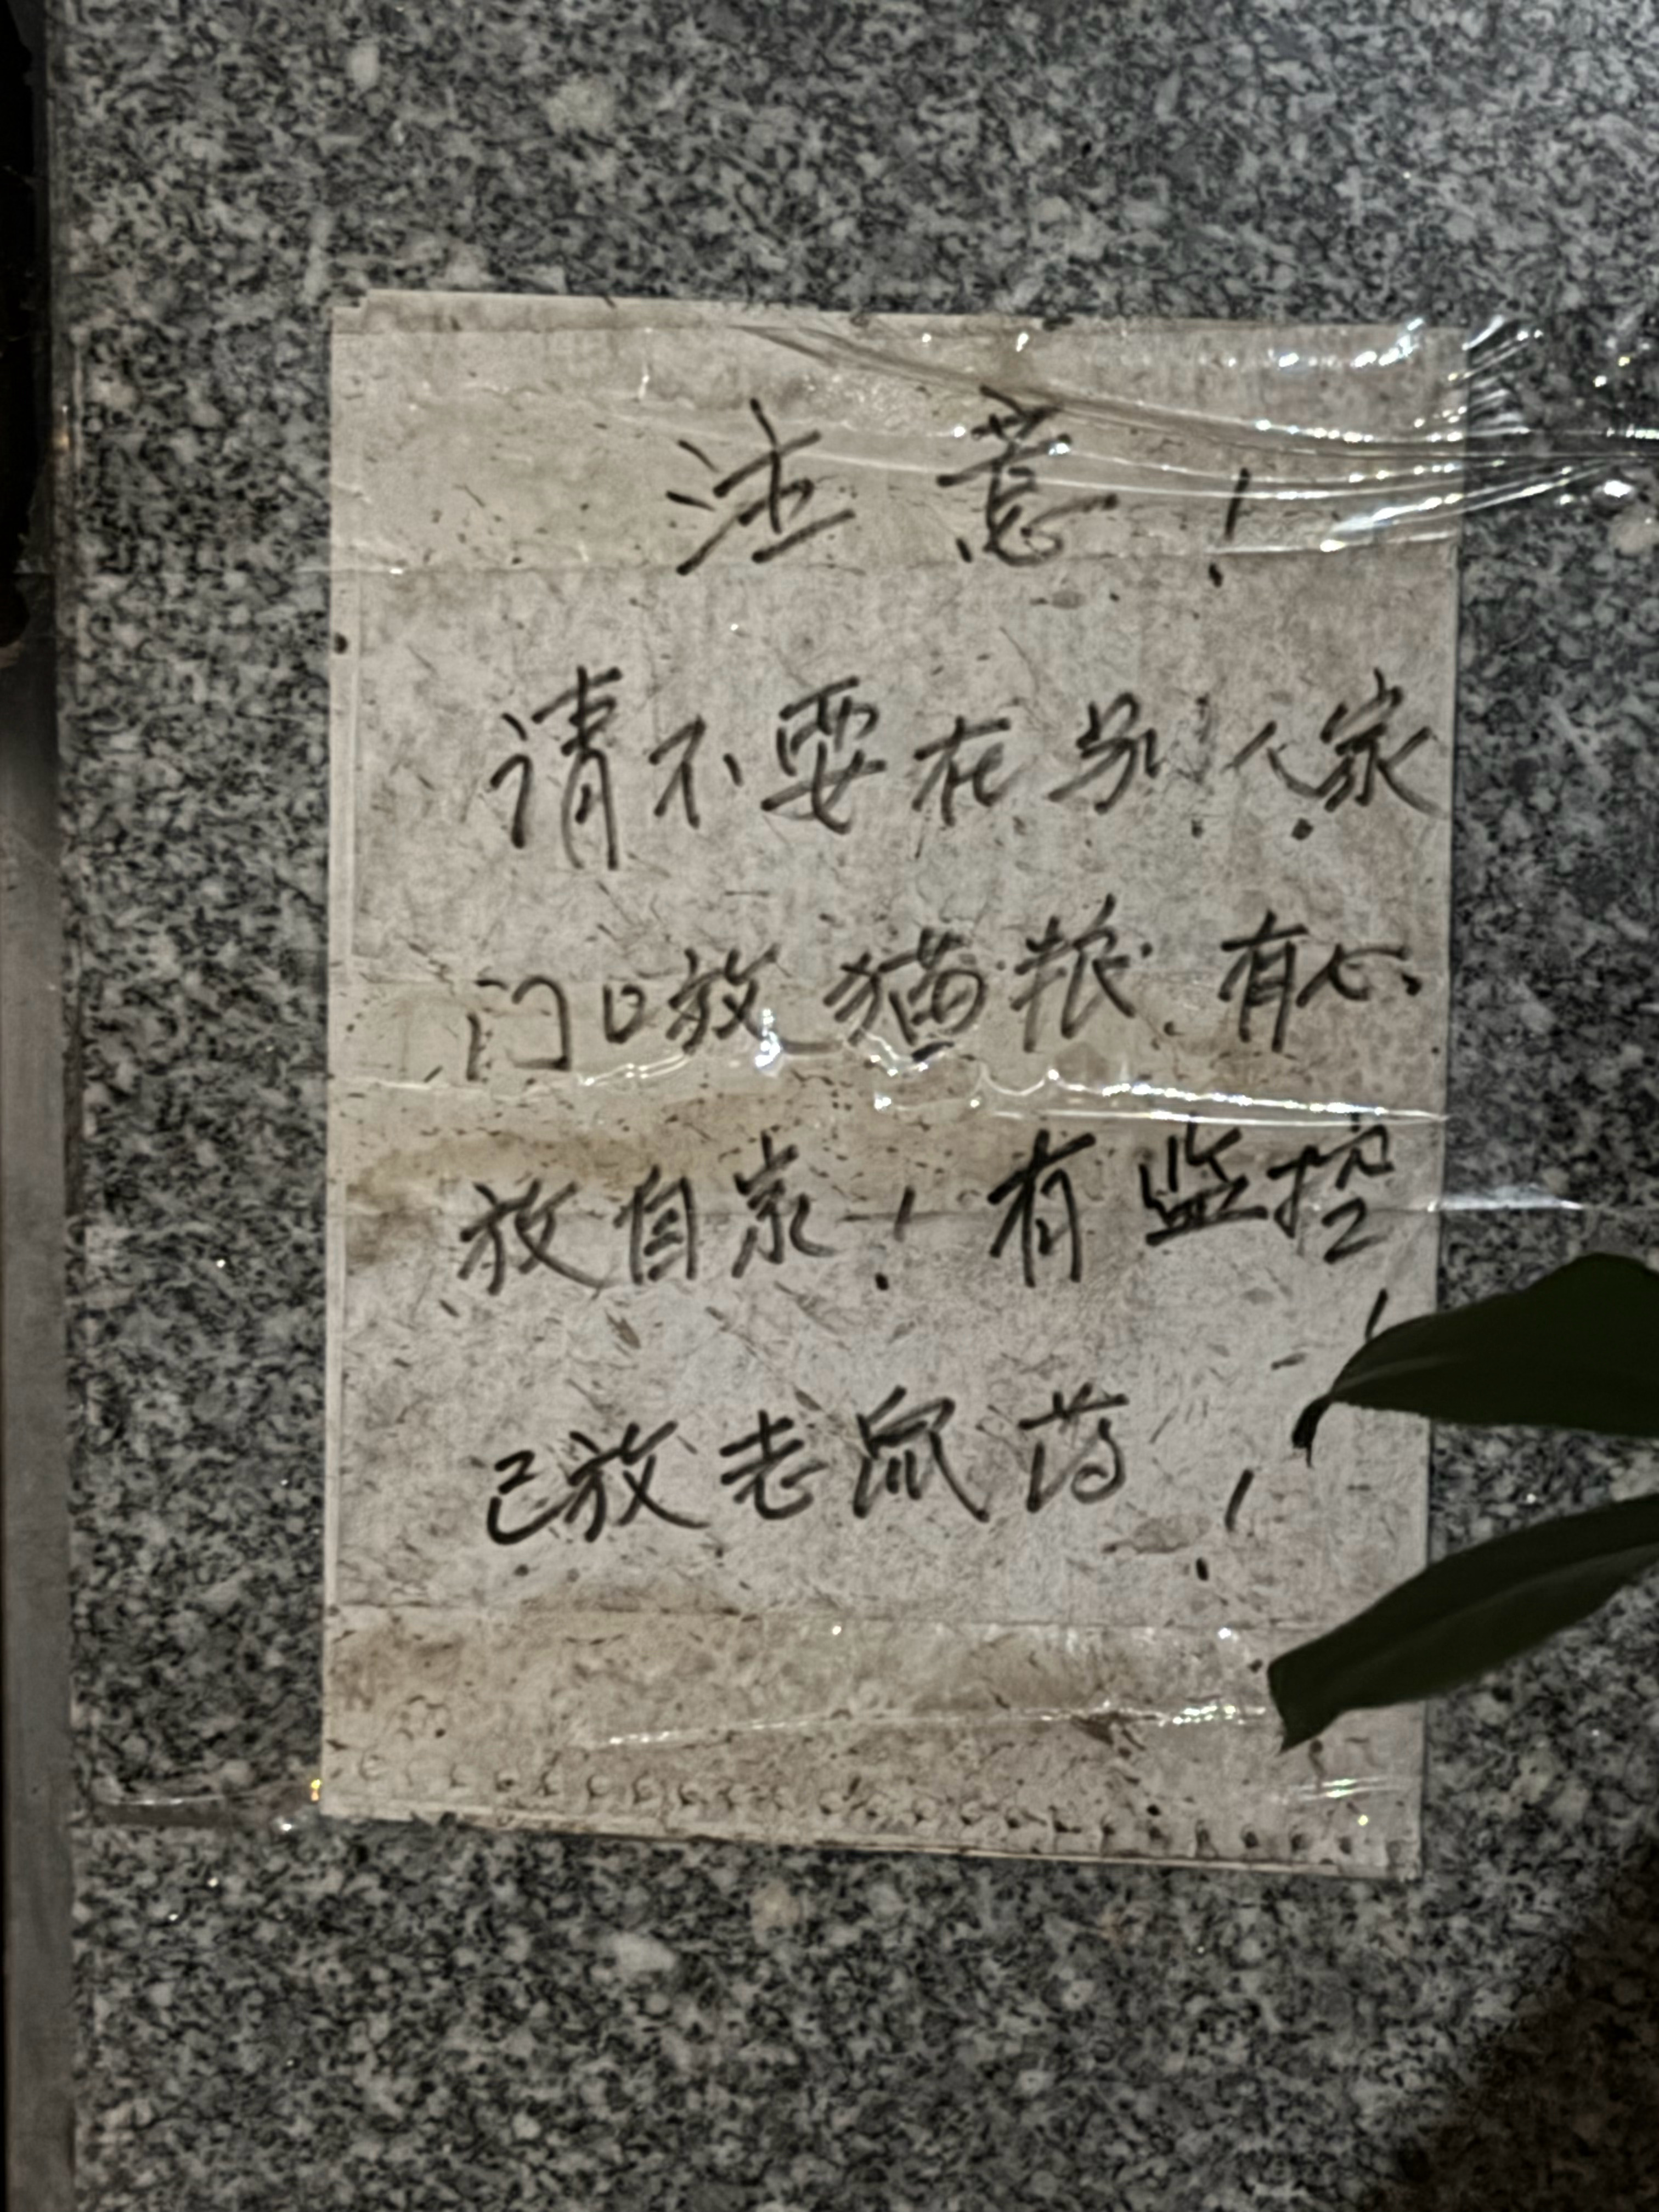 注意!
请不要在别人家
门口放猫粮.有心
放自家!有监控!
已放老鼠药!